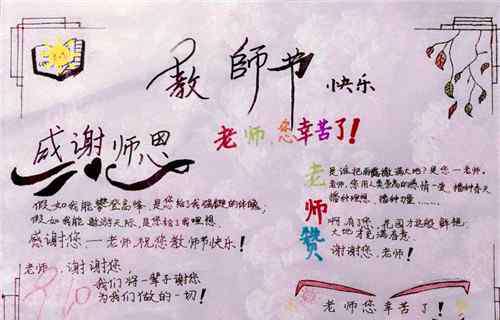 教師节
快乐
感谢师恩
老师,您辛苦了!
假如我能攀登高峰,是您给了我强健的体魄,
假如我能遨游天际,是您给了我理想,
感谢您一老师,祝您教师节快乐!
老师,谢谢您,
我们将一辈子谢您
为我们做的一切!
9.10
老师赞
是谁把雨露撒满大地?是您一老师。
老师,您用人类崇高的热情一爱,播种春天
播种理想、播种力量……
啊 有了您,花园才这般鲜艳,
大地才充满春意
谢谢您,老师!
老师您辛苦了!